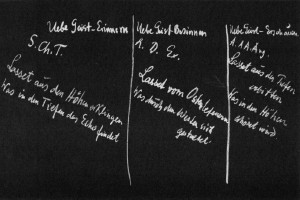 Uebe Geist-Erinnern
S. Ch. T.
Lasset aus den Höhen erklingen
Was in den Tiefen das Echo findet
Uebe Geist-Besinnen
Lasset vom Osten befeuern
Was durch den Westen sich
gestaltet
Uebe Geist-Erschauen
Lasset aus den Tiefen
erbitten
Was in den Höhen
erhöret wird